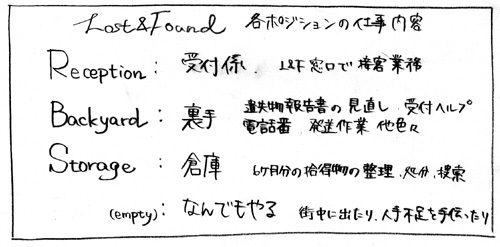 Lost&Found 各ポジションの仕事内容
Reception: 受付係、L&F窓口で接客業務
Backyard: 裏手 遺失物報告書の見直し 受付ヘルプ
電話番 発送作業 他色々
Storage: 倉庫 6ヶ月分の拾得物の整理、処分、捜索
(empty): なんでもやる 街中に出たり、人手不足を手伝ったり